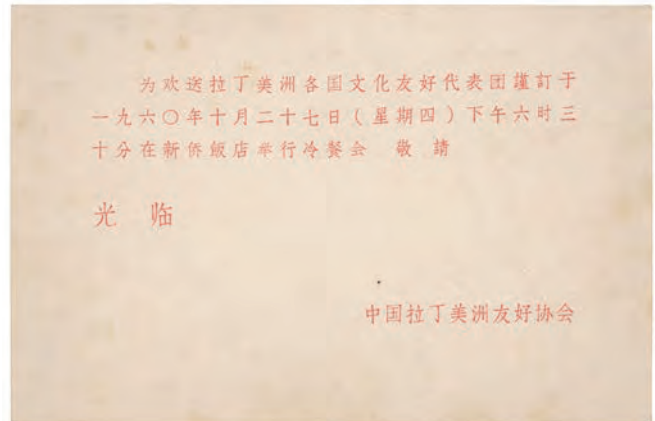 为欢送拉丁美洲各国文化友好代表团謹訂于
一九六〇年十月二十七日（星期四）下午六时三
十分在新侨飯店举行冷餐会　敬　請
光　临
中国拉丁美洲友好协会